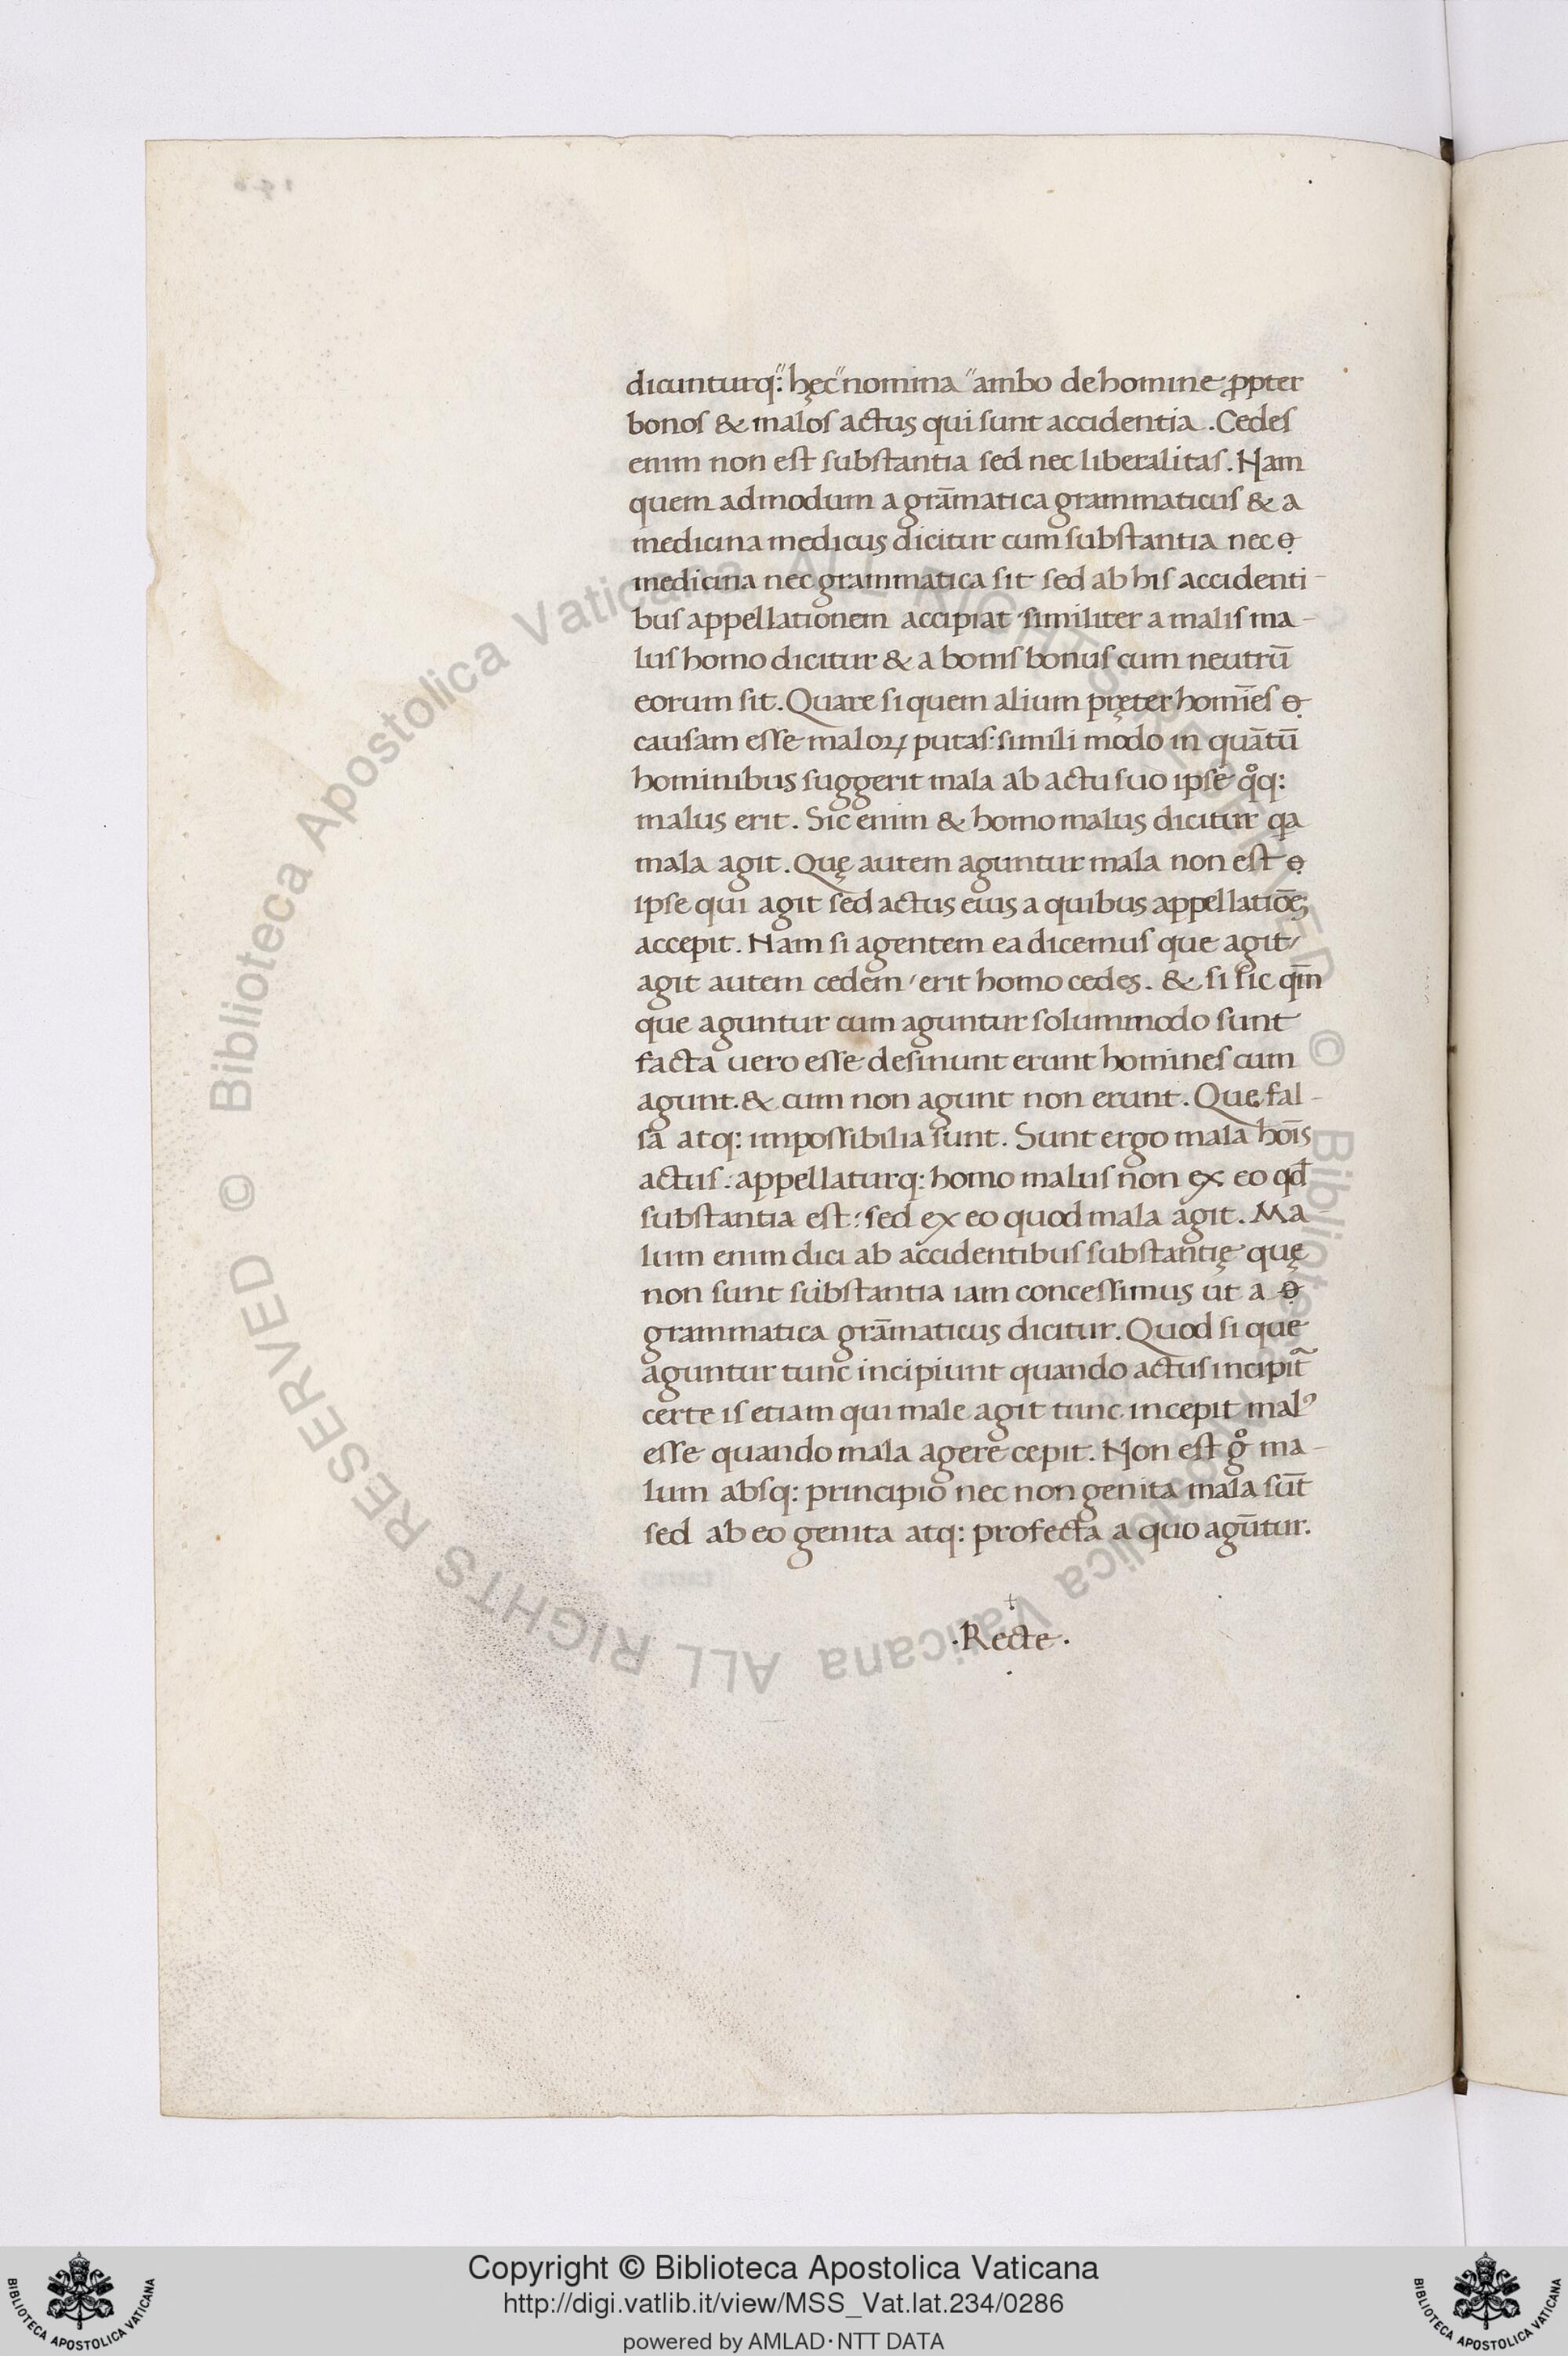 dicunturq: hęc nomina ambo de homine ꝓpter
bonos & malos actus qui sunt accidentia . Cedes
enim non est substantia sed nec liberalitas . Nam
quem admodum a grāmatica grammaticus & a
medicina medicus dicitur cum substantia nec
medicina nec grammatica sit sed ab his accidenti-
bus appellationem accipiat similiter a malis ma-
lus homo dicitur & a bonis bonus cum neutrū
eorum sit . Quare si quem alium pręter homīes
causam esse maloꝝ putas: simili modo in quātū
hominibus suggerit mala ab actu suo ipse qͦq:
malus erit . Sic enim & homo malus dicitur qa
mala agit . Quę autem aguntur mala non est
ipse qui agit sed actus eius a quibus appellatiōeʒ
accepit . Nam si agentem ea dicemus que agit/
agit autem cedem / erit homo cedes . & si sic qm̄
que aguntur cum aguntur solummodo sunt
facta uero esse desinunt erunt homines cum
agunt . & cum non agunt non erunt . Quę fal-
sa atq: impossibilia sunt . Sunt ergo mala hoīs
actus : appellaturq: homo malus non ex eo qd̄
substantia est : sed ex eo quod mala agit . Ma-
lum enim dici ab accidentibus substantię quę
non sunt substantia iam concessimus ut a
grammatica grāmaticus dicitur . Quod si que
aguntur tunc incipiunt quando actus incipit̃
certe is etiam qui male agit tunc incepit malꝰ
esse quando mala agere cepit . Non est gͦ ma-
lum absq: principio nec non genita mala sūt
sed ab eo genita atq: profecta a quo agūtur.
· Recte ·
© Biblioteca Apostolica Vaticana ALL RIGHTS RESERVED © Biblioteca Apostolica Vaticana ALL RIGHTS RESERVED
Copyright © Biblioteca Apostolica Vaticana
http://digi.vatlib.it/view/MSS_Vat.lat.234/0286
powered by AMLAD·NTT DATA
BIBLIOTECA APOSTOLICA VATICANA
BIBLIOTECA APOSTOLICA VATICANA